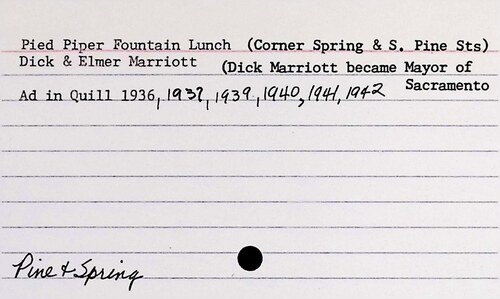 Pied Piper Fountain Lunch (Corner Spring & S. Pine Sts)
Dick & Elmer Marriott (Dick Marriott became Mayor of
Sacramento
Ad in Quill 1936, 1937, 1939, 1940, 1941, 1942
Pine & Spring